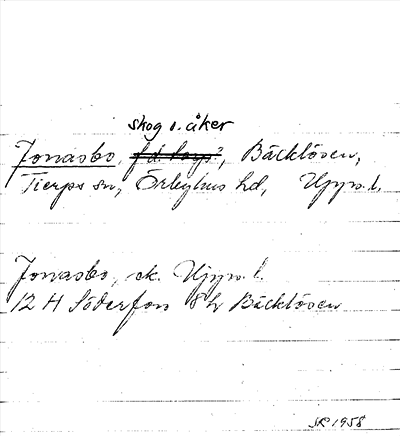 skog o. åker
Jonasbo, f d torp?, Bäcklösen,
Tierps sn, Örbyhus hd, Upps. l.
Jonasbo, ek. Upps. l.
12 H Söderfors 8 h Bäcklösen
SK 1958